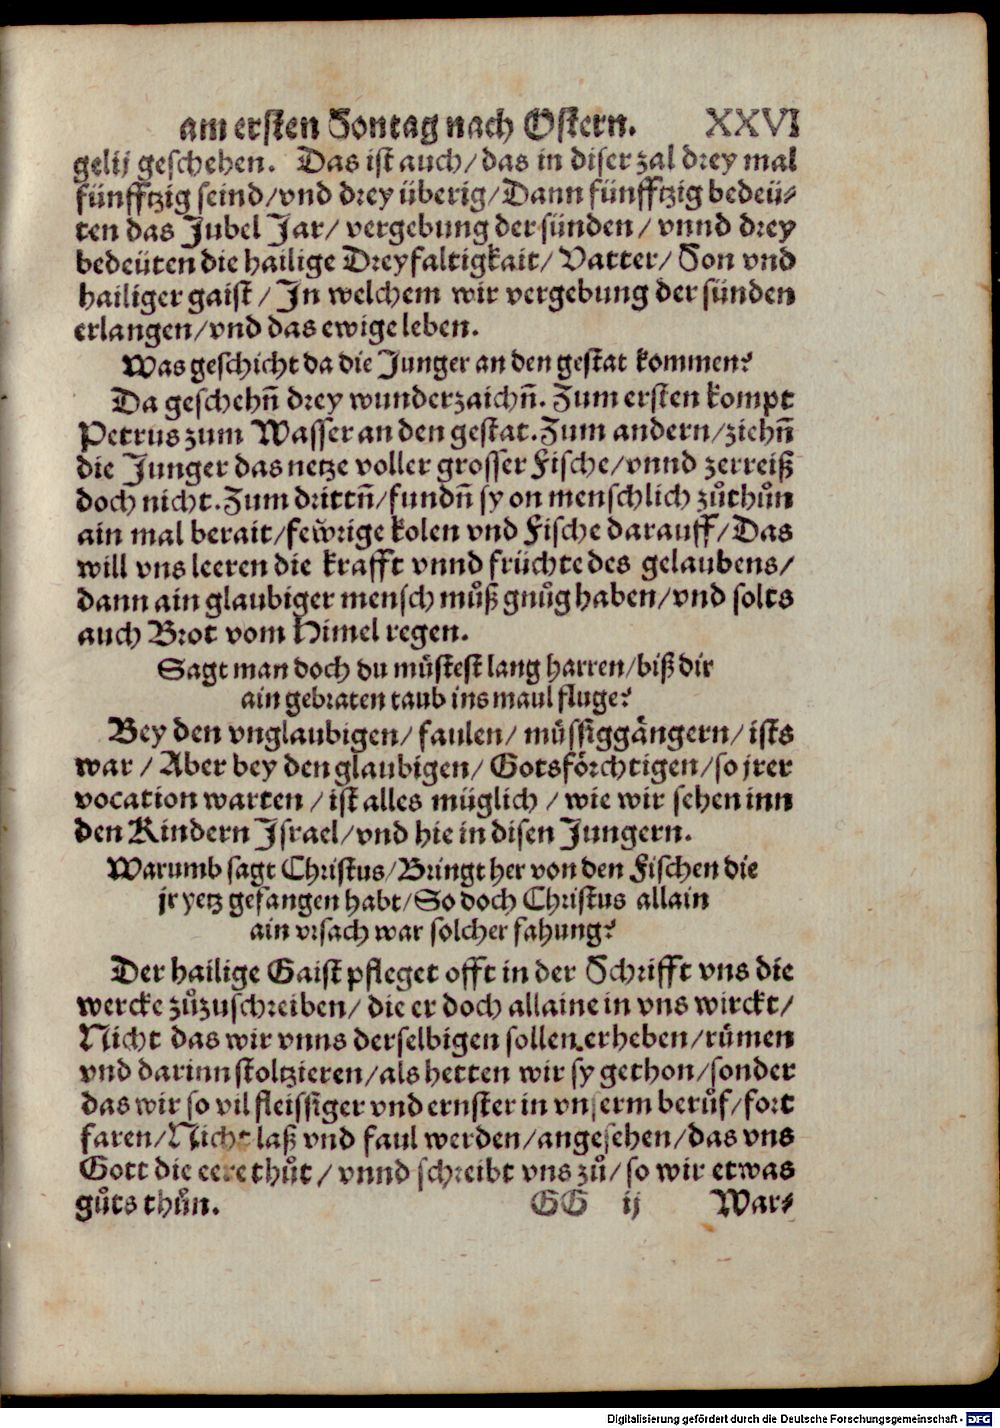 am ersten Sontag nach Ostern. XXVI
gelij geschehen. Das ist auch/das in diser zal drey mal
fünfftzig seind/vnd drey überig/Dann fünfftzig bedeü-
ten das Jubel Jar/ vergebung der sünden/ vnnd drey
bedeüten die hailige Dreyfaltigkait/ Vatter/ Son vnd
hailiger gaist/ In welchem wir vergebung der sünden
erlangen/vnd das ewige leben.
Was geschicht da die Junger an den gestat kommen?
Da geschehñ drey wunderzaichñ. Zum ersten kompt
Petrus zum Wasser an den gestat. Zum andern/ziehñ
die Junger das netze voller grosser Fische/vnnd zerreiß
doch nicht. Zum drittñ/fundñ sy on menschlich zůthůn
ain mal berait/fewͤrige kolen vnd Fische darauff/Das
will vns leeren die krafft vnnd früchte des gelaubens/
dann ain glaubiger mensch můß gnůg haben/vnd solts
auch Brot vom Himel regen.
Sagt man doch du müstest lang harren/biß dir
ain gebraten taub ins maul fluge?
Bey den vnglaubigen/ faulen/ müssiggängern/ ists
war/ Aber bey den glaubigen/ Gotsförchtigen/so jrer
vocation warten/ist alles müglich/wie wir sehen inn
den Kindern Israel/vnd hie in disen Jungern.
Warumb sagt Christus/Bringt her von den Fischen die
jr yetz gefangen habt/So doch Christus allain
ain vrsach war solcher fahung?
Der hailige Gaist pfleget offt in der Schrifft vns die
wercke zůzuschreiben/ die er doch allaine in vns wirckt/
Nicht das wir vnns derselbigen sollen erheben/rümen
vnd darinn stoltzieren/als hetten wir sy gethon/sonder
das wir so vil fleissiger vnd ernster in vnserm berůf/fort
faren/Nicht laß vnd faul werden/angesehen/das vns
Gott die eere thůt/ vnnd schreibt vns zů/so wir etwas
gůts thůn. GG ij War-
Digitalisierung gefördert durch die Deutsche Forschungsgemeinschaft - DFG